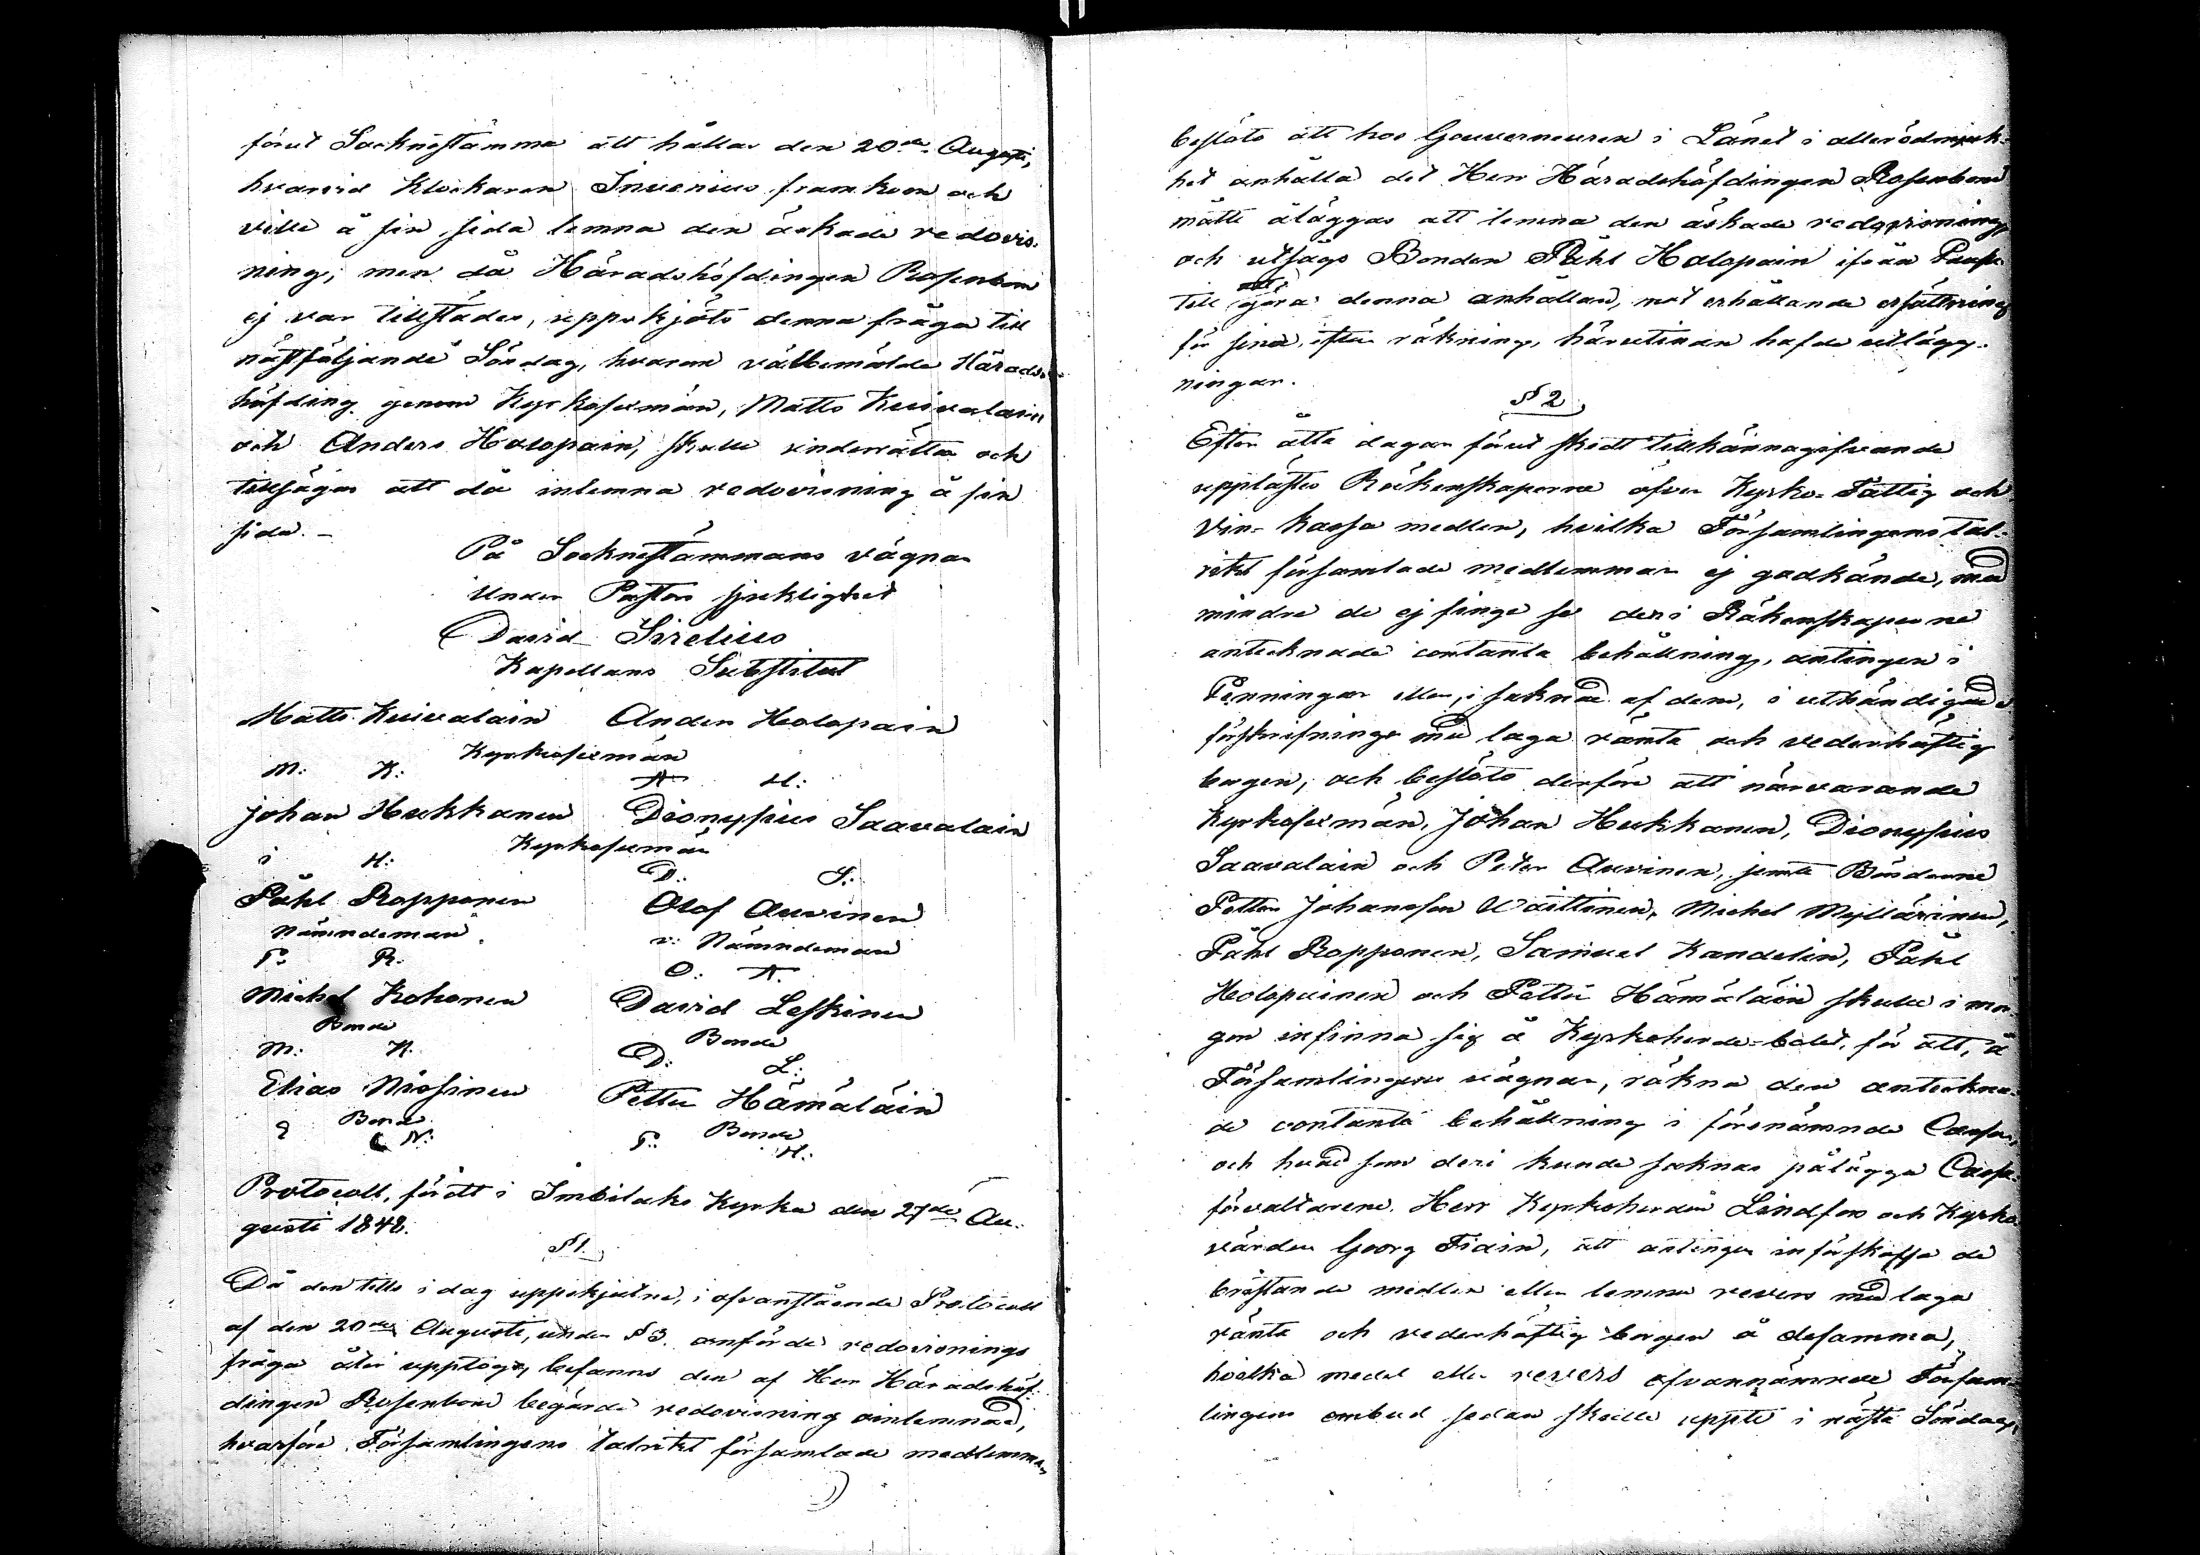 förut Socknestämma att hållas den 20de Augusti,
hvarvid Klockaren Invenius framkom och
ville å sin sida lemna den äskade redovis-
ning; men då Häradshöfdingen Rosenbom
ej var tillstädes, uppskjöts denna fråga till
nästföljande Söndag, hvarom välbemälde Härads-
höfding genom Kyrkosexmän, Matts Kuivalain
och Anders Holopain, skulle underrättas och
tillsägas att då inlemna redovisning å sin
sida. –
På Socknestämmans vägnar
Under Pastors sjuklighet
David Sirelius
Kapellans Substitut
Matts Kuivalain Anders Holopain
Kyrkosexmän
M: K: A: H:
Johan Hukkanen Dionysius Saavalain
Kyrkosexmän
i H: D: S:
Påhl Ropponen Olof Auvinen
Nämndeman v: Nämndeman
P: R: O: A:
Michel Kokonen David Leskinen
Bonde Bonde
M: K: D: L:
Elias Nissinen Petter Hämäläin
Bonde Bonde
E N: P: H:
Protocoll, fördt i Imbilaks Kyrka den 27de Au-
gusti 1848.
§ 1.
Då den tills i dag uppskjutne, i ofvanstående Protocoll
af den 20de Augusti, under § 3. anförde redovisnings
fråga åter upptogs, befanns den af Herr Häradshöf-
dingen Rosenbom begärde redovisning oinlemnad,
hvarföre Församlingens talrikt församlade medlemmar
beslöts att hos Gouverneuren i Länet i allerödmjuk-
het anhålla det Herr Häradshöfdingen Rosenbom
måtte åläggas att lemna den äskade redovisning,
och utsågs Bonden Påhl Holopain ifrån
till att göra denna anhållan, mot erhållande ersättning
för sina, efter räkning, härutinan hafde utlägg-
ningar.
§ 2.
Efter åtta dagar förut skedt tillkännagifvande
upplästes Räkenskaperne öfver Kyrko- Fattig och
Vin- kassa medlen, hvilka Församlingens tal-
rikt församlade medlemmar ej godkände, med
mindre de ej finge se den i Räkenskaperne
antecknade contanta behållning, antingen i
Penningar eller, i saknad af dem, i uthändigade
förskrifningar med laga ränta och vederhäftig
borgen; och beslöts derföre att närvarande
Kyrkosexmän, Johan Hukkanen, Dionysius
Saavalain och Peter Auvinen, jemte Bönderne
Petter Johansson Wäittinen, Michel Myllärinen,
Påhl Ropponen, Samuel Kandelin, Påhl
Holopainen och Petter Hämäläin skulle i mor-
gon infinna sig å Kyrkoherde-bolet, för att, å
Församlingens vägnar, räkna den anteckna-
de contanta behållning i förenämnde Cassor,
och hvad som deri kunde saknas pålägga Cassa-
förvaltarene, Herr Kyrkoherden Lindfors och Kyrko-
värden Georg Tiain, att antingen införskaffa de
bristande medlen eller lemna revers med laga
ränta och vederhäftig borgen å desamma,
hvilka medel eller revers ofvannämnde Försam-
lingens ombud sedan skulle uppte i nästa Söndag,